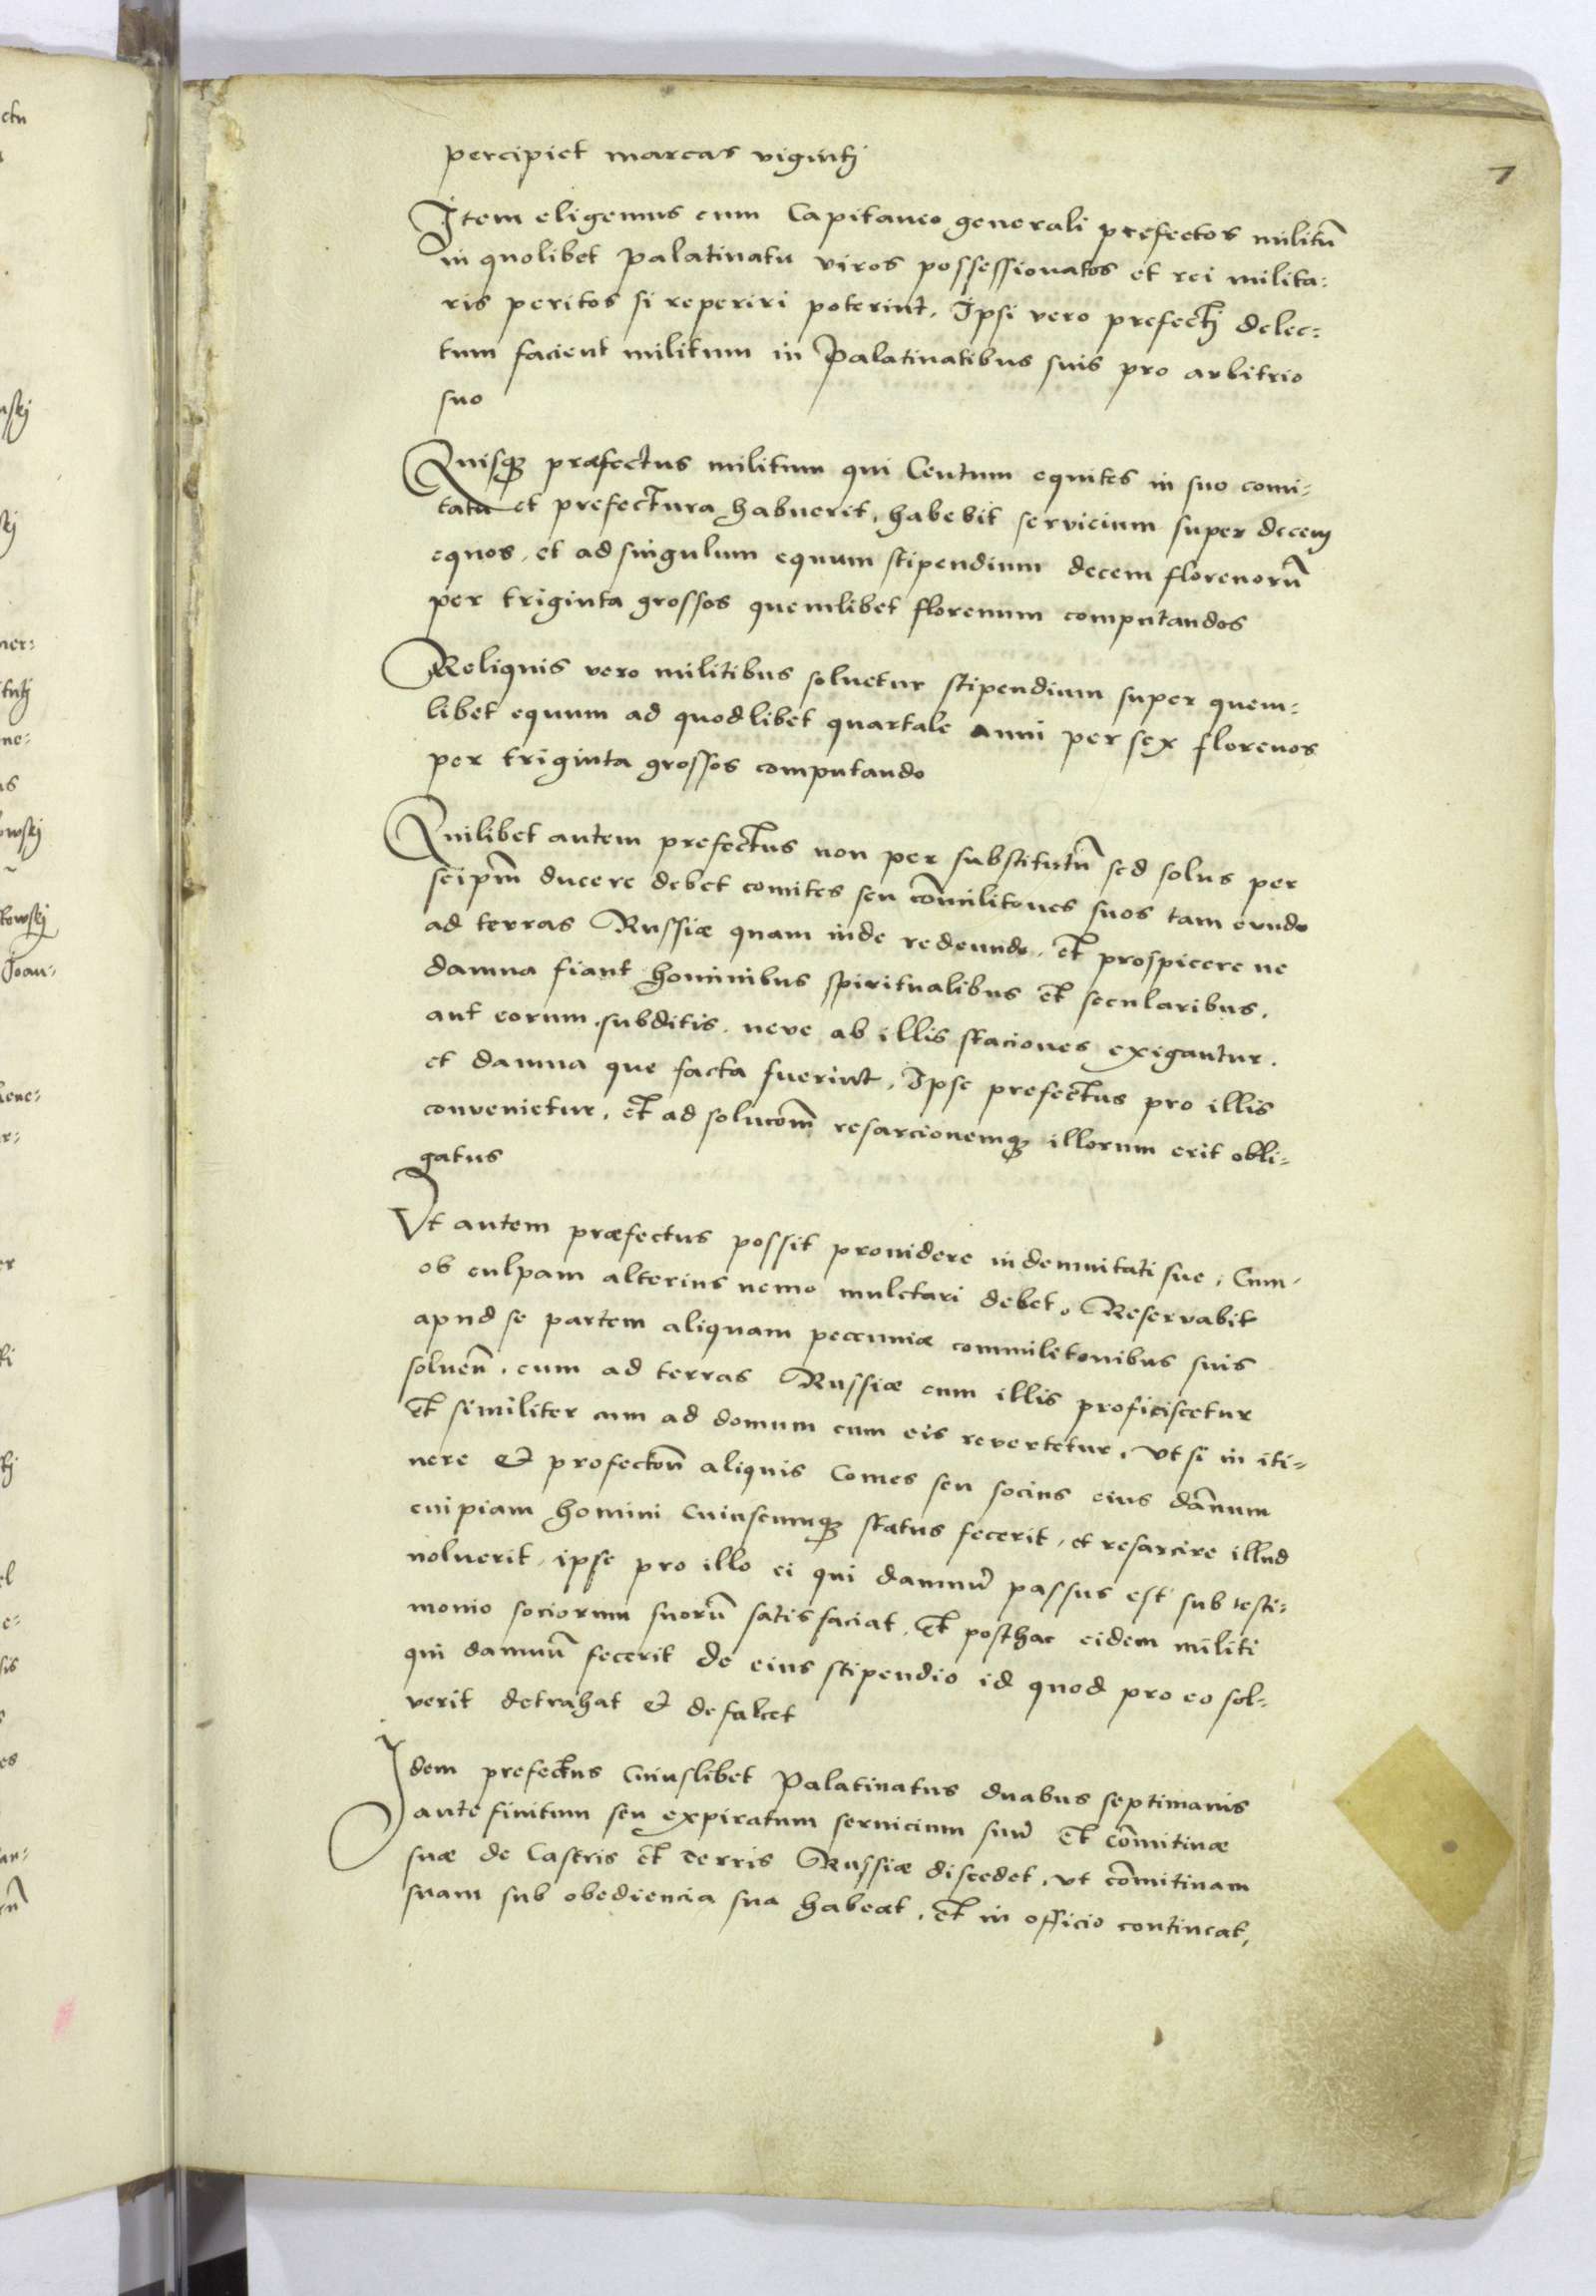 7
percipiet marcas viginti
Item eligemus cum Capitaneo generali prefectos militũ
in quolibet palatinatu viros possessionatos et rei milita:
ris peritos si reperiri poterint, Ipsi vero prefecti delec:
tum facient militum in Palatinatibus suis pro arbitrio
suo
Quisq; præfectus militum qui Centum equites in suo comi:
tatu et prefectura habuerit, habebit servicium super decem
equos, et ad singulum equum stipendium decem florenorũ
per triginta grossos quemlibet florenum computandos
Reliquis vero militibus soluetur stipendium super quem:
libet equum ad quodlibet quartale anni per sex florenos
per triginta grossos computando
Quilibet autem prefectus non per substitutũ sed solus per
seipm̃ ducere debet comites seu com̃ilitones suos tam eundo
ad terras Russiæ quam inde redeundo, et prospicere ne
damna fiant hominibus spiritualibus et secularibus,
aut eorum subditis, neve ab illis staciones exigantur.
et damna que facta fuerint, Ipse prefectus pro illis
convenietur, et ad solucom̃ resarcionemq; illorum erit obli:
gatus
Vt autem præfectus possit prouidere indemnitati sue, Cum
ob culpam alterius nemo mulctari debet, Reservabit
apud se partem aliquam pecuniæ commilitonibus suis
soluen̄, cum ad terras Russiæ cum illis proficiscetur
et similiter cum ad domum cum eis revertetur, vt si in iti:
nere & profecton̄ aliquis Comes seu socius eius dam̃num
cuipiam homini Cuiuscumq; status fecerit, et resarcire illud
noluerit, ipse pro illo ei qui damnũ passus est sub testi:
monio sociorum suorũ satisfaciat, et posthac eidem militi
qui damnũ fecerit de eius stipendio id quod pro eo sol:
verit detrahat & defalcet
Idem prefectus Cuiuslibet Palatinatus duabus septimanis
ante finitum seu expiratum seruicium suũ et com̃itiuæ
suæ de Castris et terris Russiæ discedet, vt com̃itiuam
suam sub obediencia sua habeat, et in officio contineat,